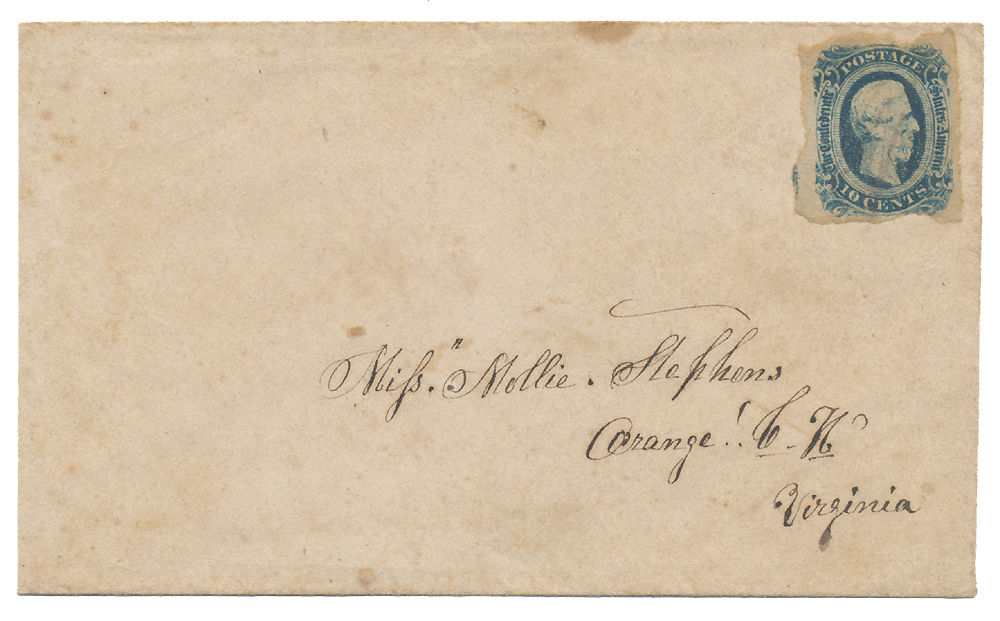 POSTAGE
The Confederate States of America
10 CENTS
Miss. " Mollie. Stephens
Orange! C. H
Virginia